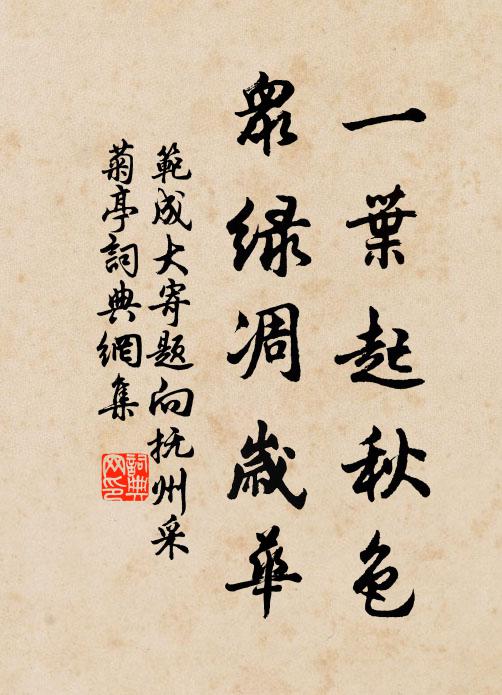 一葉起秋色
眾緑凋歲華
範成大寄題向抚州采
菊亭詞典網集
詞典
网印